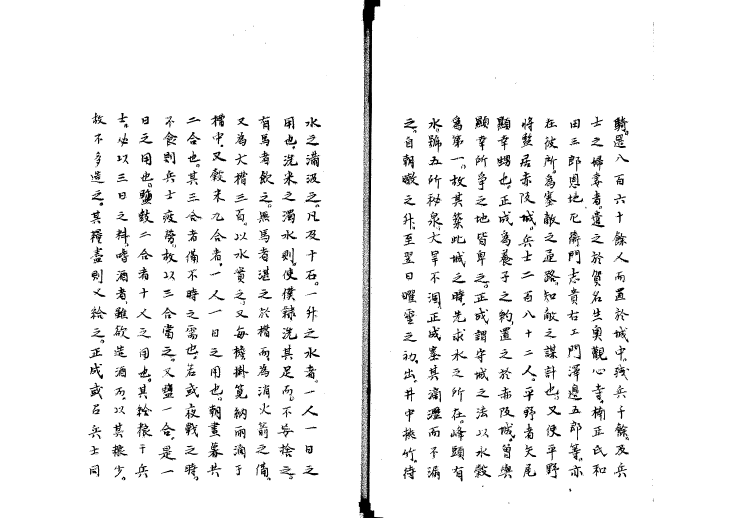 騎。選八百六十餘人而置於城中。残兵千餘。及兵
士之婦妻者。遣之於賀名生奥觀心寺。楠正氏和
田三郎恩地左衞門志貴右工門澤邊五郎等。亦
在彼所。爲塞敵之通路。知敵之謀計也。又使平野
將監居赤阪城。兵士二百八十二人。平野者矢尾
顯幸甥也。正成爲養子之約。置之於赤阪城。曾與
顯幸所爭之地皆卑之。正成謂守城之法以水穀
爲第一。故其築此城之時。先求水之所在。峰頭有
水。號五所秘泉。大旱不涸。正成塞其滴瀝而不漏
之。自朝暾之升。至翌日曜靈之初出。井中振竹。待
水之滿汲之。凡及十石。一升之水者。一人一日之
用也。洗米之濁水則。使僕隸洗其足而。不妄捨之。
有馬者飲之。無馬者湛之於槽而爲消火箭之備。
又爲大槽三百。以水貯之。又每榜掛筧納雨滴于
槽中。又穀米九合者。一人一日之用也。朝晝暮共
二合也。其三合者備不時之需也。若或夜戰之時。
不食則兵士疲勞。故以三合當之。又鹽一合。是一
日之用也。鹽豉二合者十人之用也。其給粮于兵
士。必以三日之料。嗜酒者。雖欲造酒而。以其粮少。
故不多造之。其糧盡則又給之。正成或召兵士同